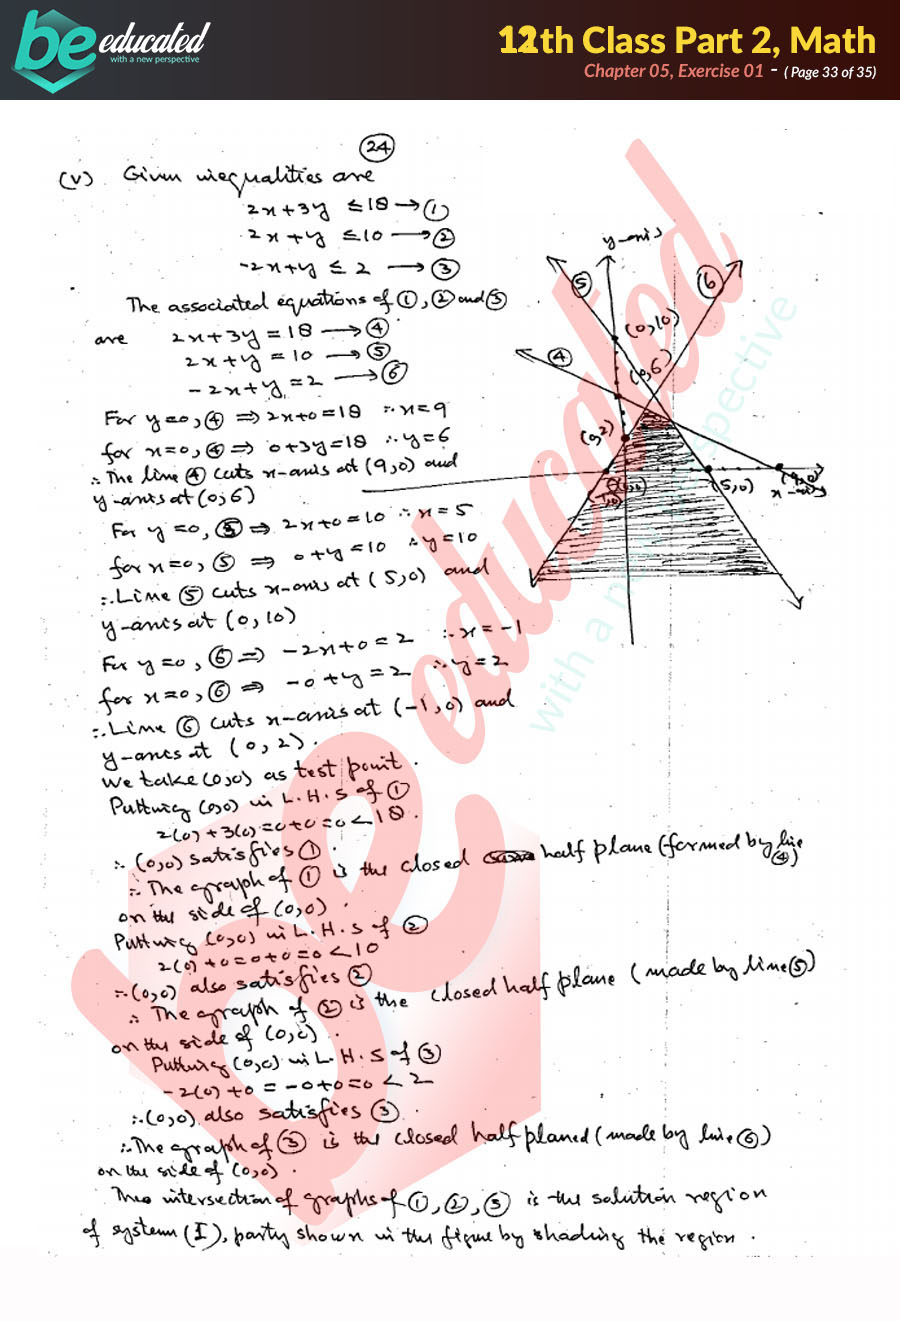 be educated
with a new perspective
12th Class Part 2, Math
Chapter 05, Exercise 01 - ( Page 33 of 35)
24
(v) Given inequalities are
2x+3y ≤18 → ①
2x+y ≤10 → ②
-2x+y ≤ 2 → ③
The associated equations of ①, ② and ③
are 2x+3y=18 → ④
2x+y=10 → ⑤
-2x+y=2 → ⑥
For y=0, ④ ⇒ 2x+0=18 ∴ x=9
for x=0, ④ ⇒ 0+3y=18 ∴ y=6
∴ The line ④ cuts x-axis at (9,0) and
y-axis at (0,6)
For y=0, ⑤ ⇒ 2x+0=10 ∴ x=5
for x=0, ⑤ ⇒ 0+y=10 ∴ y=10
∴ Line ⑤ cuts x-axis at (5,0) and
y-axis at (0,10)
For y=0, ⑥ ⇒ -2x+0=2 ∴ x=-1
for x=0, ⑥ ⇒ -0+y=2 ∴ y=2
∴ Line ⑥ cuts x-axis at (-1,0) and
y-axis at (0,2).
We take (0,0) as test point.
Putting (0,0) in L.H.S of ①
2(0)+3(0)=0+0=0<18.
∴ (0,0) satisfies ①.
∴ The graph of ① is the closed half plane (formed by line ④)
on the side of (0,0).
Putting (0,0) in L.H.S of ②
2(0)+0=0+0=0<10
∴ (0,0) also satisfies ②
∴ The graph of ② is the closed half plane (made by line ⑤)
on the side of (0,0).
Putting (0,0) in L.H.S of ③
-2(0)+0=-0+0=0<2
∴ (0,0) also satisfies ③.
∴ The graph of ③ is the closed half planed (made by line ⑥)
on the side of (0,0).
The intersection of graphs of ①, ②, ③ is the solution region
of system (I), party shown in the figure by shading the region.
y-axis
⑤
⑥
(0,10)
④
(0,6)
(0,2)
(5,0)
(9,0)
x-axis
be educated
with a new perspective